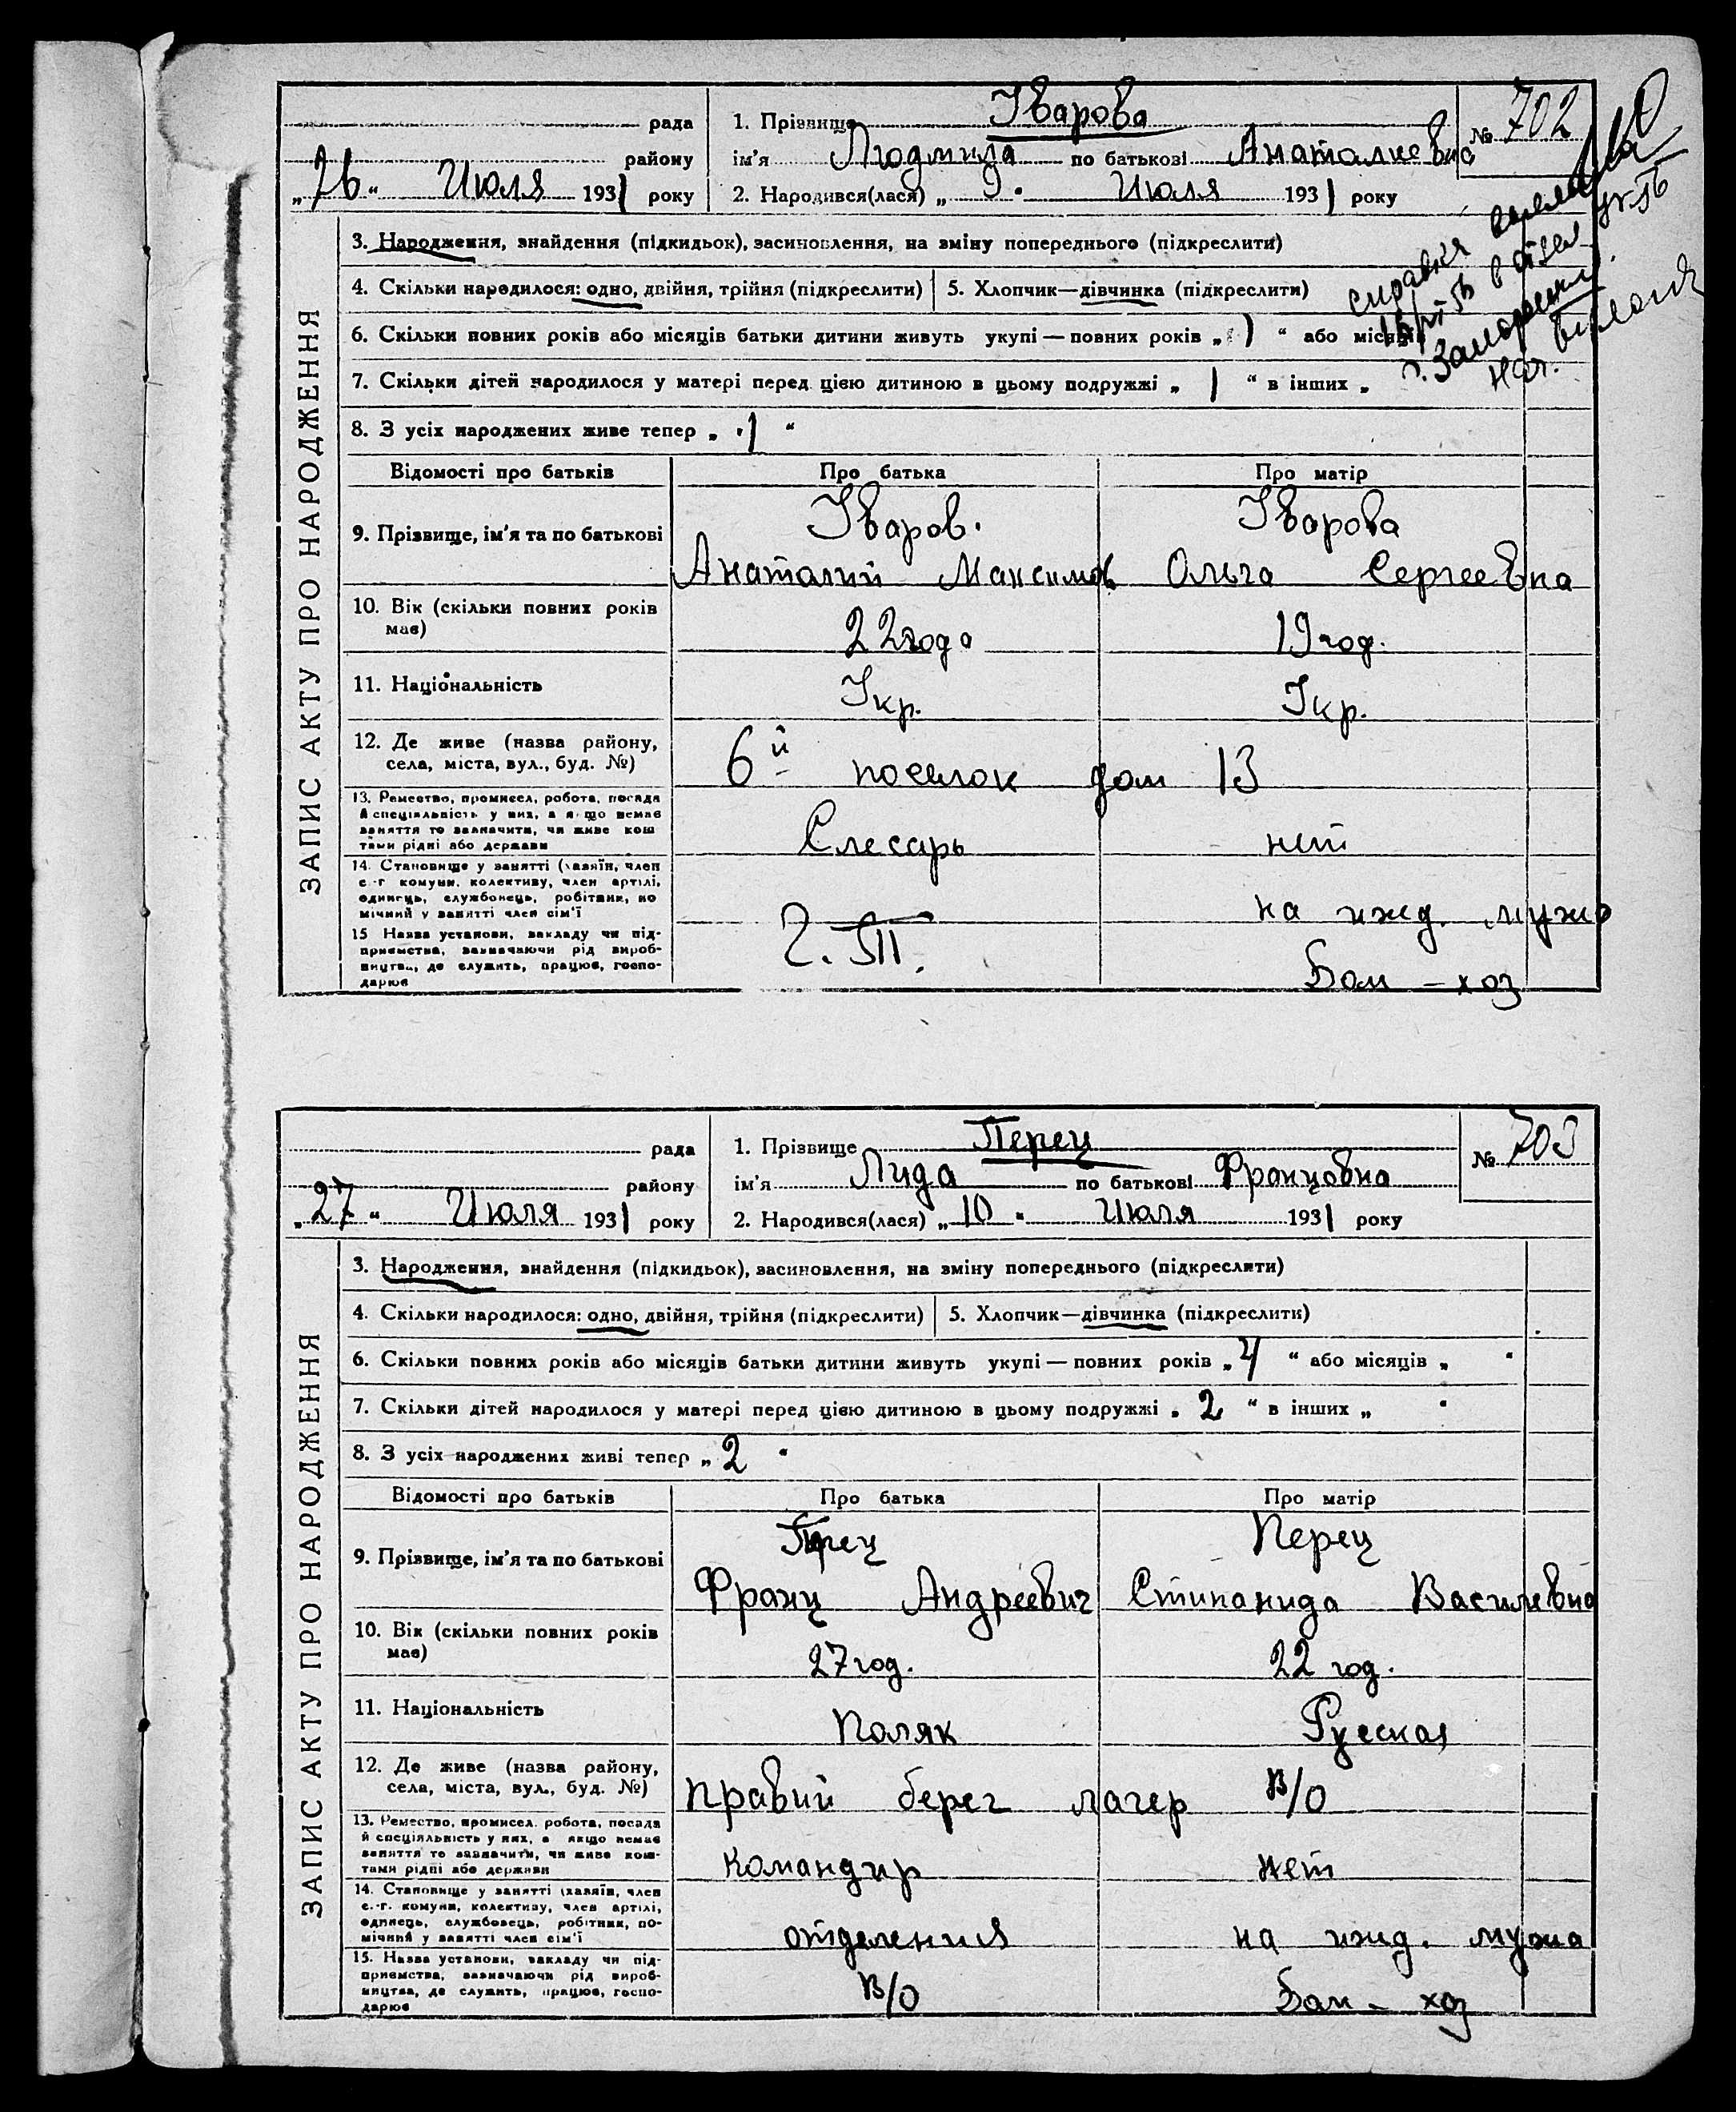 рада
району
„26“ Июля 1931 року
1. Прізвище Уварова
ім'я Людмила по батькові Анаталиевна
2. Народився(лася) „9“ Июля 1931 року
№ 702
справка
г. Запорожжи
ЗАПИС АКТУ ПРО НАРОДЖЕННЯ
3. Народження, знайдення (підкидьок), засиновлення, на зміну попереднього (підкреслити)
4. Скільки народилося: одно, двійня, трійня (підкреслити) 5. Хлопчик—дівчинка (підкреслити)
6. Скільки повних років або місяців батьки дитини живуть укупі — повних років „1“ або місяців
7. Скільки дітей народилося у матері перед цією дитиною в цьому подружжі „1“ в інших „
8. З усіх народжених живе тепер „1“
Відомості про батьків Про батька Про матір
9. Прізвище, ім'я та по батькові Уваров. Уварова
Анаталий Максимов Ольга Сергеевна
10. Вік (скільки повних років має) 22 года 19 год.
11. Національність Укр. Укр.
12. Де живе (назва району, села, міста, вул., буд. №) 6й поселок дом 13
13. Ремество, промисел, робота, посада й спеціяльність у них, а якщо немає заняття то зазначити, чи живе коштами рідні або держави Слесарь нет
14. Становище у занятті (хазяїн, член с.-г комуни, колективу, член артілі, одинець, службовець, робітник, помічний у занятті член сім'ї на ижд. мужа
15 Назва установи, закладу чи підприємства, зазначаючи рід виробництва, де служить, працює, господарює Дом – хоз
рада
району
„27“ Июля 1931 року
1. Прізвище Перец
ім'я Лида по батькові Францовна
2. Народився(лася) „10“ Июля 1931 року
№ 703
ЗАПИС АКТУ ПРО НАРОДЖЕННЯ
3. Народження, знайдення (підкидьок), засиновлення, на зміну попереднього (підкреслити)
4. Скільки народилося: одно, двійня, трійня (підкреслити) 5. Хлопчик—дівчинка (підкреслити)
6. Скільки повних років або місяців батьки дитини живуть укупі — повних років „4“ або місяців „ “
7. Скільки дітей народилося у матері перед цією дитиною в цьому подружжі „2“ в інших „ “
8. З усіх народжених живі тепер „2“
Відомості про батьків Про батька Про матір
9. Прізвище, ім'я та по батькові Перец Перец
Франц Андреевич Стипанида Василевна
10. Вік (скільки повних років має) 27 год. 22 год.
11. Національність Поляк Руская
12. Де живе (назва району, села, міста, вул., буд. №) правий берег лагер В/О
13. Ремество, промисел, робота, посада й спеціяльність у них, а якщо немає заняття то зазначити, чи живе коштами рідні або держави командир нет
14. Становище у занятті (хазяїн, член с.-г. комуни, колективу, член артілі, одинець, службовець, робітник, помічний у занятті член сім'ї отделения на ижд. мужа
15. Назва установи, закладу чи підприємства, зазначаючи рід виробництва, де служить, працює, господарює В/О Дом – хоз